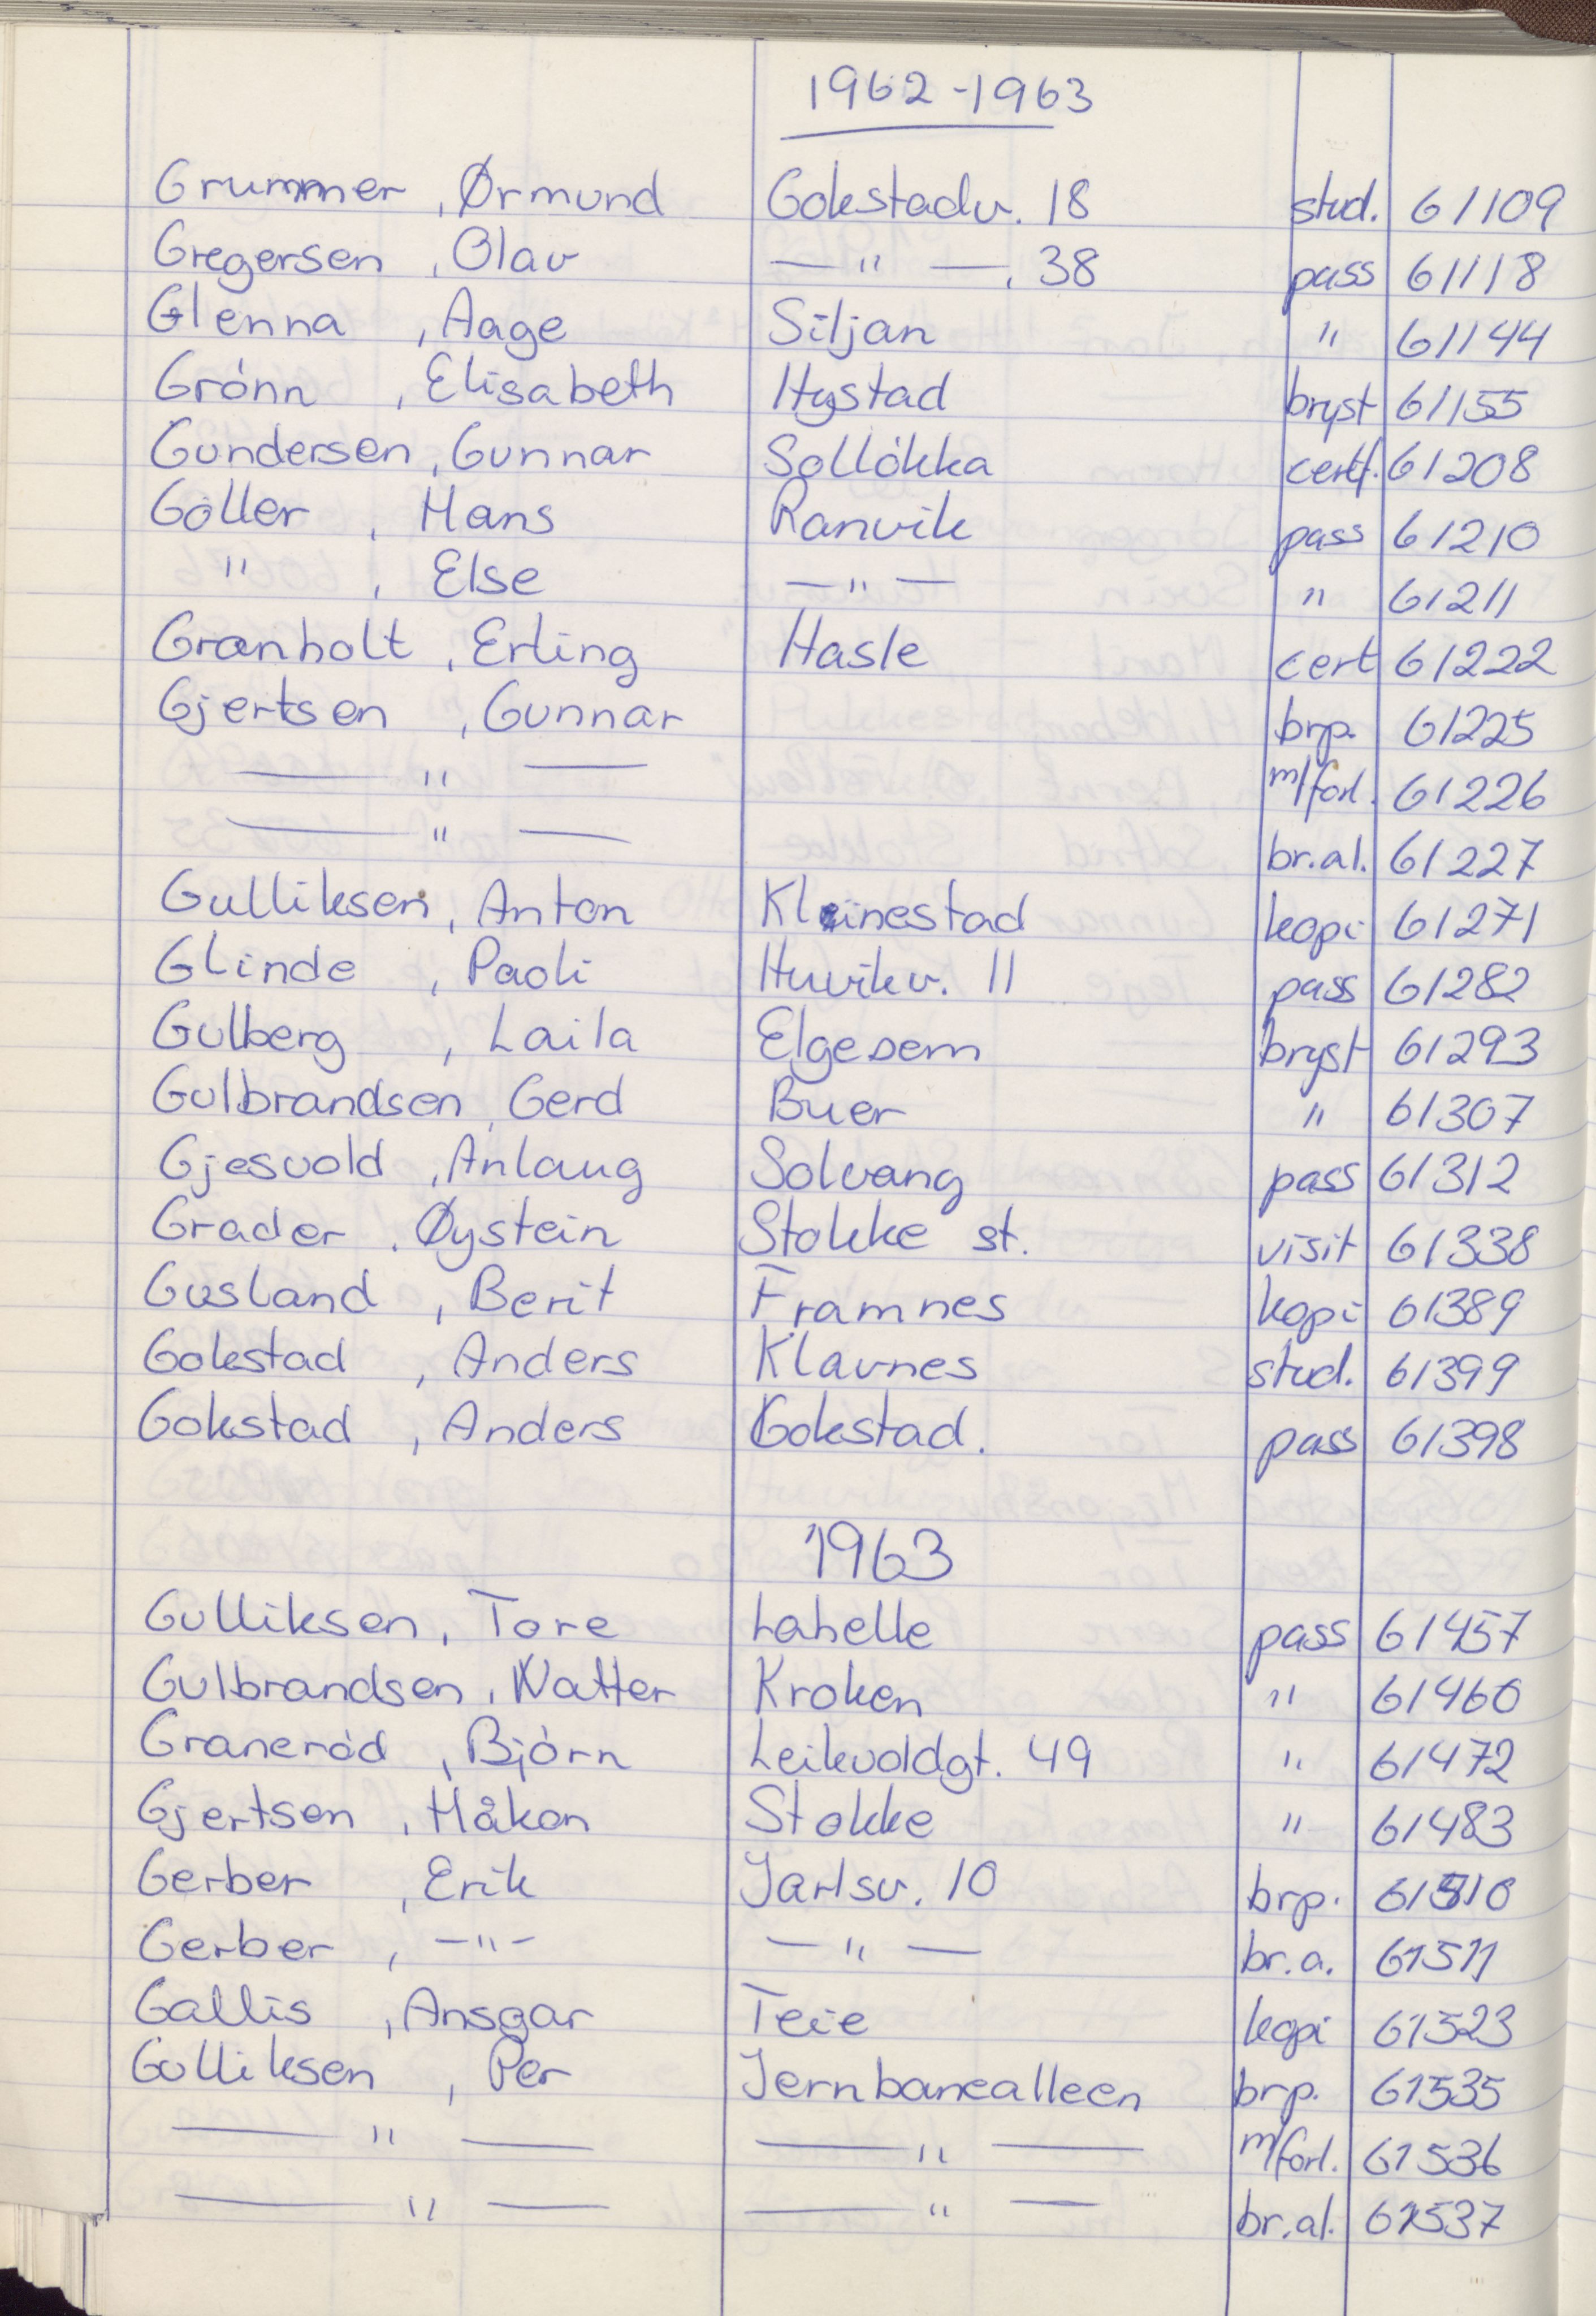 1962-1963
Grummer, Ørmund Gokstadv. 18 stud. 61109
Gregersen, Olav —"—. 38 pass 61118
Glenna, Aage Siljan " 61144
Grónn, Elisabeth Hystad bryst 61155
Gundersen, Gunnar Sollókka certf. 61208
Góller, Hans Ranvik pass 61210
", Else —"— " 61211
Granholt, Erling Hasle cert 61222
Gjertsen, Gunnar brp. 61225
—"— m/forl. 61226
—"— br.al. 61227
Gulliksen, Anton Kleinestad kopi 61271
Glinde, Paoli Huvikv. 11 pass 61282
Gulberg, Laila Elgesem bryst 61293
Gulbrandsen, Gerd Buer " 61307
Gjesvold, Anlaug Solvang pass 61312
Grader, Øystein Stokke st. visit 61338
Gusland, Berit Framnes kopi 61389
Gokstad, Anders Klavnes stud. 61399
Gokstad, Anders Gokstad. pass 61398
1963
Gulliksen, Tore Lahelle pass 61457
Gulbrandsen, Walter Kroken " 61460
Graneród, Bjórn Leikvoldgt. 49 " 61472
Gjertsen, Håkon Stokke " 61483
Gerber, Erik Jarlsv. 10 brp. 61510
Gerber, —"— —"— br.a. 61511
Gallis, Ansgar Teie kopi 61523
Gulliksen, Per Jernbanealleen brp. 61535
—"— —"— m/forl. 61536
—"— —"— br.al. 61537